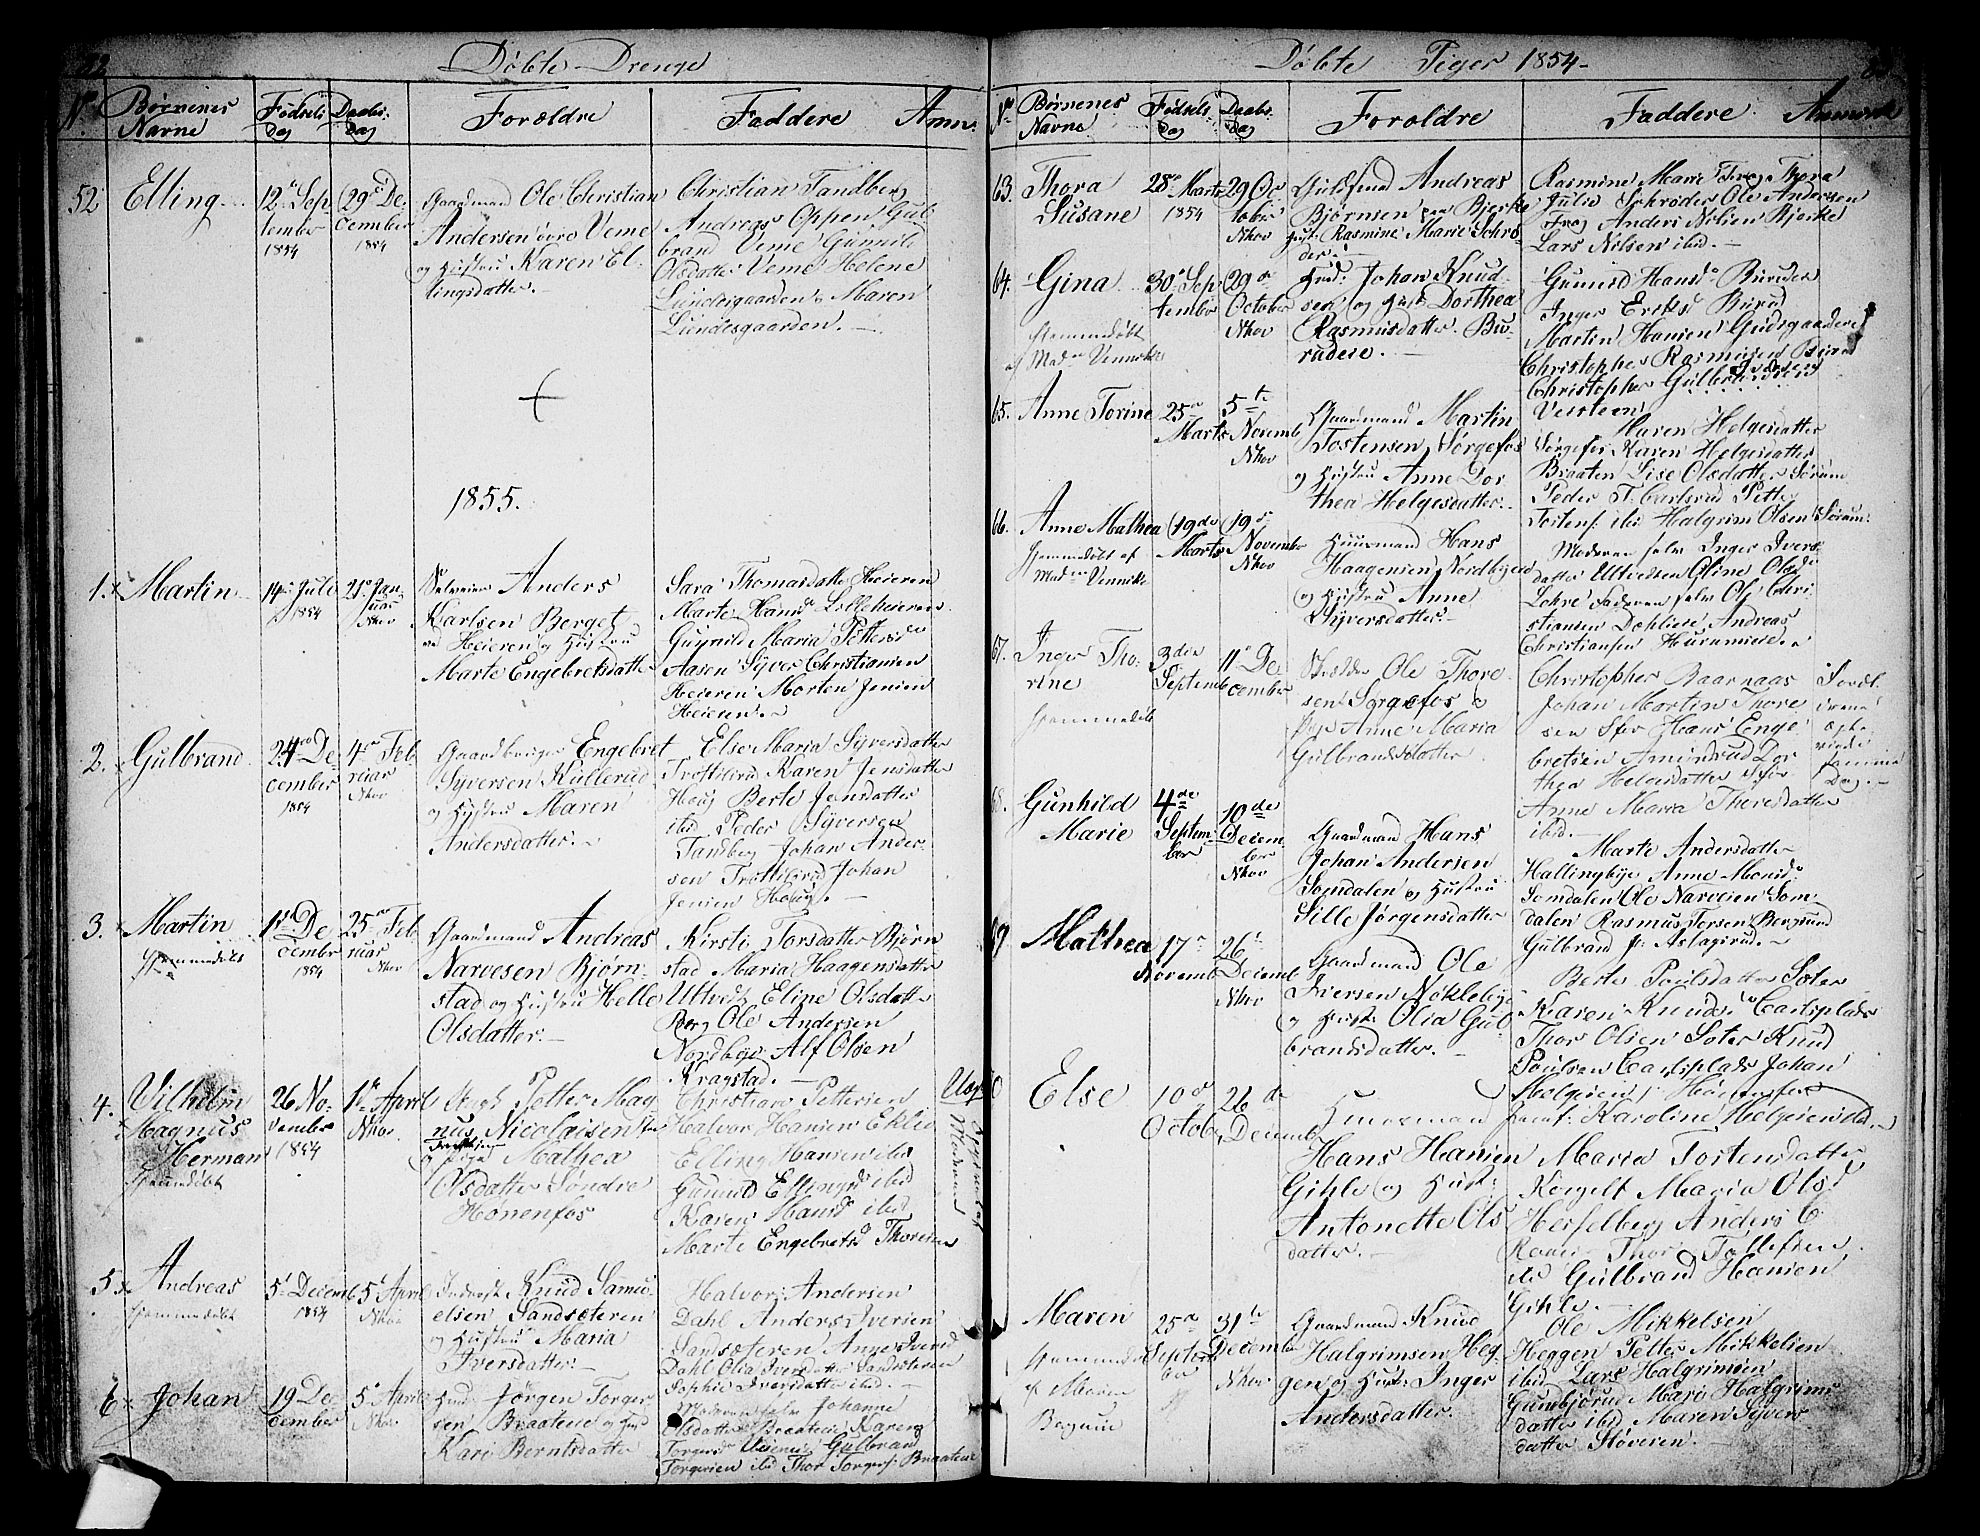 Døbte Drenge
No
Børnenes Navne
Fødsels Dag
Daabs Dag
Forældre
Faddere
Anm:
52 Elling
12te September 1854
29de December 1854
Gaardmand Ole Christian
Andersen øvre Veme
og Hustru Karen El-
lingsdatter.
Christian Tandberg
Andreas Oppen Gul
brand Veme Gunnild
Olsdatter Veme Helene
Lundesgaarden Maren
Lundesgaarden.
1855.
1. Martin
14de Juli 1854
21de Januar Nkov
Anders
Karlsen Berget
Heieren og Hustru
Marte Engebretsdatter
Sara Thomasdatter Heieren
Marte Hansd Lilleheieren
Gunnild Maria Pettersd
Aasen Syver Christiansen
Heieren Morten Jensen
Heieren.
2. Gulbrand
24de December 1854
4de Februar Nkov
Gaardbruger Engebret
Syversen Kullerud
og Hustru Maren
Andersdatter.
Else Maria Syversdatter
Trøttilrud Karen Jensdatter
Houg Berte Jensdatter
ibid Peder Syversen
Tandberg Johan Ander-
sen Trøttilrud Johan
Jensen Houg.
3. Martin
hjemmedøbt
1ste December 1854
25de Februar Nkov
Gaardmand Andreas
Narvesen Bjørn-
stad og Hustru Helle
Olsdatter.
Kirsti Torsdatter Bjørn
stad Maria Haagensdatter
Ultvedt Eline Olsdatter
Berg Ole Andersen
Nordbye Alf Olsen
Kragstad.
4. Vilhelm
Magnus
Herman
hjemmdøbt
26 November 1854
1ste April Nkov.
Petter Mag
nus Nicolaisen
og Pige Mathea
Olsdatter Søndre
Hønenfos
Christiane Pettersen
Halvor Hansen Eklid
Elling Hansen ibid
Gunnild Ellingsd ibid
Karen Hansd ibid
Marte Engebretsd Thoresen
Uægte
Moderens
5. Andreas
hjemmedøbt
5te December 1854
5te April Nkov
Inderst Knud Samu-
elsen Sandsæteren
og Hustru Maria
Iversdatter
Halvor Andersen
Dahl Anders Iversen
Sandsæteren Anne Iversd
Dahl Olia Iversdatter Sandsæteren
Sophie Iversdatter ibid
6. Johan
19 December
5te April Nkov.
Huusmd Jørgen Torger-
sen Braatene og Hust
Kari Berntsdatter
Moderen selv Johanne
Olsdatter Braatene Karen
Torgersd Gulbrand
Torgersen ibid Thor Torgers: Braatene
Døbte Piger 1854
No
Børnenes Navne
Fødsels Dag
Daabs Dag
Forældre
Faddere
Anmærk
63. Thora
Susane
28de Marts 1854
29 October Nkov
Guldsmed Andreas
Bjørnsen Bjerke
Hust. Rasmine Marie Schrø-
der.
Rasmine Marie Frog Thora
Julie Schrøder Ole Andersen
Frog Anders Nilsen Bjerke
Lars Nilsen ibid.
64. Gina
hjemmedøbt
af Madm Vennike
30te September
29de October Nkov
Huusmd: Johan Knud
sen og Hust Dorthea
Rasmusdatter Bu-
rudeie.
Gunnild Hansd Burudeie
Inger Eriksd Burud
Martin Hansen Gudsgaarden
Christopher Rasmusen Burud
Christopher Gulbrandsen
Veisteen
65. Anne Torine
25de Marts
5te November Nkov
Gaardmand Martin
Tostensen Sørgefos
og Hustru Anne Dor
thea Helgesdatter.
Maren Helgesdatter
Sørgefos Karen Helgesdatter
Braaten Lise Olsdatter Sørum
Peder T. Carlsrud Petter
Tostens. ibid Halgrim Olsen Sørum
66. Anne Mathea
hjemmedøbt af
Madm Vennike
19de Marts
19de November Nkov
Huusmand Hans
Haagensen Nordbyeeie
og Hustru Anne
Syversdatter.
Moderen selv Inger Ivers-
datter Ultvedteien Oline Olsd
Lohre Faderen selv Ole Chri
stiansen Dæhlieie Andreas
Christiansen
67. Inger Tho-
rine
hjemmedøbt
3die September
11te December
Ole Thore
sen Sørgefos og
Pige Anne Maria
Gulbrandsdatter
Christopher Baarnaas
Johan Martin Thore
sen Hans Enge
bretsen Amundrud Dor
thea Helgesdatter
Anne Maria Thoresdatter
ibid.
Forældrene
ægte-
viede
samme
Dag.
68. Gunhild
Marie
4de September
10de December Nkov
Gaardmand Hans
Johan Andersen
Somdalen og Hustru
Sille Jørgensdatter
Marte Andersdatter
Hallingbye Anne Monsd:
Somdalen Ole Narvesen Som-
dalen Rasmus Torsen Bergsund
Gulbrand J: Aslagsrud.
69 Mathea
17de November
26de December Nkov
Gaardmand Ole
Iversen Nøklebye
og Hustr Olia Gul
brandsdatter.
Berte Poulsdatter Soter
Karen Knudsd Carlsplads
Thor Olsen Soter Knud
Poulsen Carlsplads Johan
Helgesen Hønenfos
Jomf. Karoline Helgesen ibid.
70 Else
10de October
26de December
Huusmand
Hans Hansen
Gihle og Hust:
Antonette Ols
datter.
Maria Tostensdatter
Korgelt Maria Olsd
Hesselberg Anders C
Thor Tollefsen
ibid Gulbrand Hansen
Gihle.
Maren
hjemmedøbt
af Maren
Begnue
25de September
31te December Nkov.
Gaardmand Knud
Halgrimsen Heg-
gen og Hust: Inger
Andersdatter.
Ole Mikkelsen
Heggen Petter Mikkelsen
ibid Lars Halgrimsen
Gunbjørud Mari Halgrims
datter ibid Maren Syvers
datter Støveren.